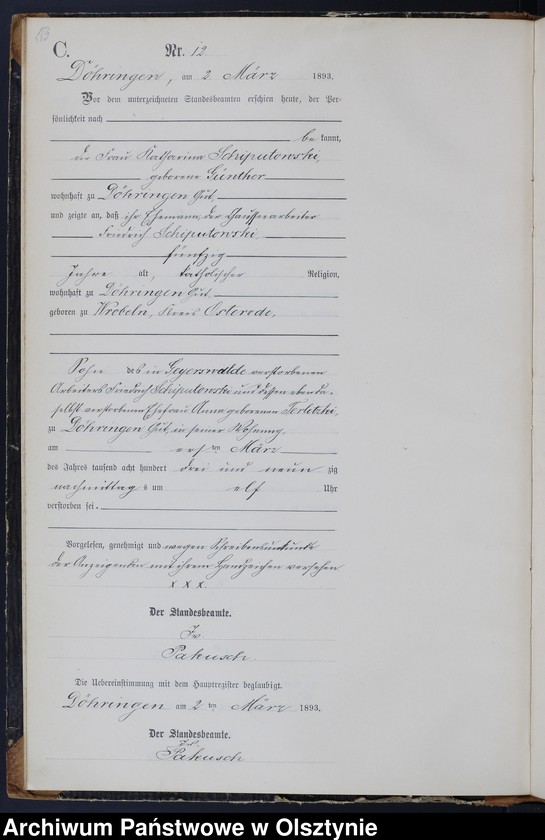 C.
Nr. 12
Döhringen, am 2 März 1893.
Vor dem unterzeichneten Standesbeamten erschien heute, der Per-
sönlichkeit nach
be kannt,
die Frau Katharina Schiputowski,
geborene Günther
wohnhaft zu Döhringen Gut,
und zeigte an, daß ihr Ehemann, der Chausseearbeiter
Friedrich Schiputowski,
fünfzig
Jahre alt, katholischer Religion,
wohnhaft zu Döhringen Gut,
geboren zu Wrobeln, Kreis Osterode,
Sohn des in Geyerswalde verstorbenen
Arbeiters Friedrich Schiputowski und dessen ebenda-
selbst verstorbenen Ehefrau Anna geborenen Terletzki,
zu Döhringen Gut, in seiner Wohnung,
am ersten März
des Jahres tausend acht hundert drei und neun zig
nachmittag s um elf Uhr
verstorben sei.
Vorgelesen, genehmigt und wegen Schreibensunkunde
der Anzeigenden mit ihrem Handzeichen versehen
x x x.
Der Standesbeamte.
Pakusch
Die Uebereinstimmung mit dem Hauptregister beglaubigt.
Döhringen am 2 ten März 1893.
Der Standesbeamte.
Pakusch
Archiwum Państwowe w Olsztynie